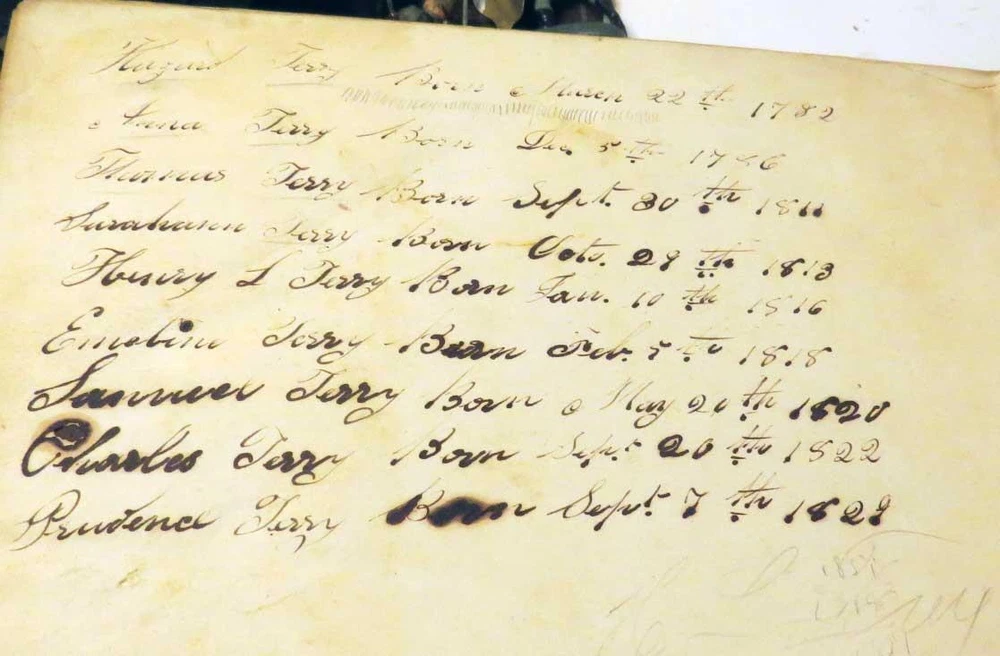 Hazard Terry Born March 22th 1782
Anna Terry Born Dec 5th 1786
Thomas Terry Born Sept. 30th 1811
Sarahann Terry Born Oct. 29th 1813
Henry L Terry Born Jan. 10th 1816
Emeline Terry Born Feb. 5th 1818
Samuel Terry Born May 20th 1820
Charles Terry Born Sept 20th 1822
Prudence Terry Born Sept 7th 1829